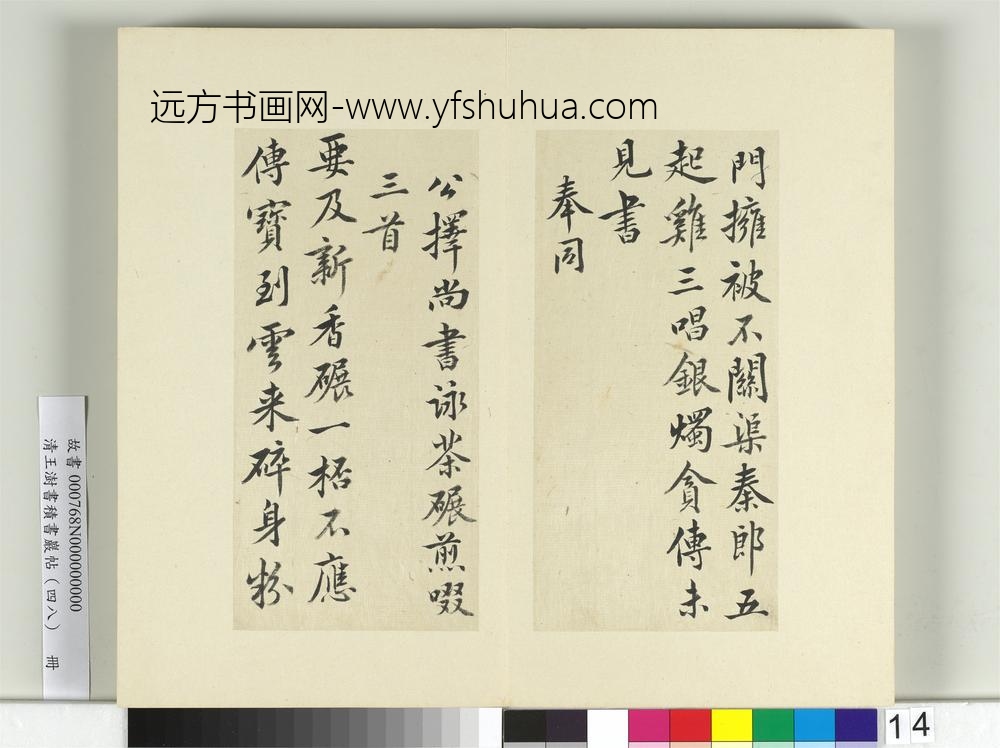 远方书画网-www.yfshuhua.com
門擁被不關渠秦郎五
起雞三唱銀燭貪傳未
見書
奉同
公擇尚書詠茶碾煎啜
三首
要及新香碾一桮不應
傳寶到雲来碎身粉
故書 000768N000000000
清王澍書積書巖帖(四八) 冊
14